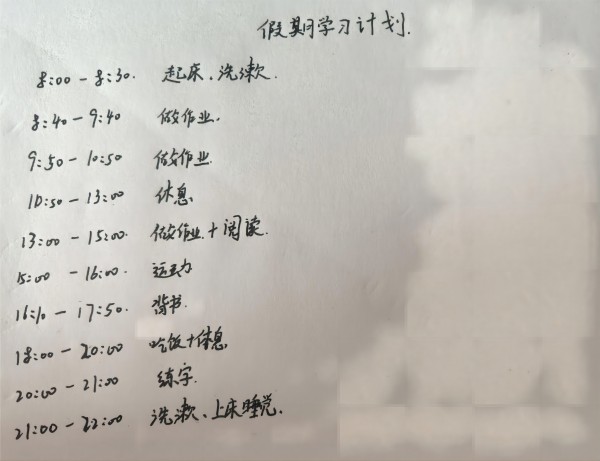 假期学习计划.
8:00 - 8:30. 起床、洗漱.
8:40 - 9:40 做作业.
9:50 - 10:50 做作业
10:50 - 13:00 休息
13:00 - 15:00. 做作业+阅读.
15:00 - 16:00. 运动
16:10 - 17:50. 背书.
18:00 - 20:00 吃饭+休息
20:00 - 21:00 练字.
21:00 - 22:00 洗漱、上床睡觉.